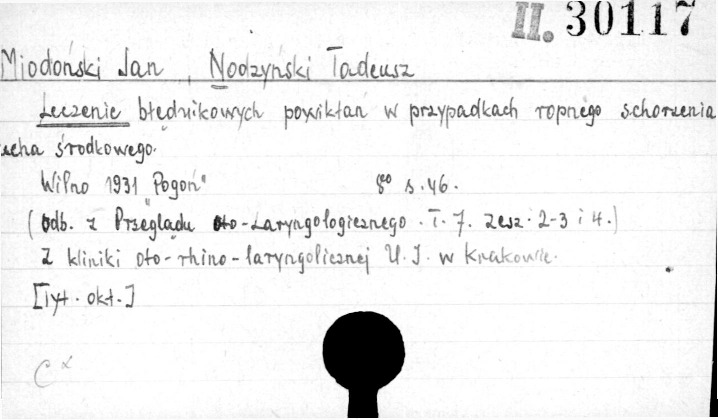 II. 30117
Miodoński Jan, Nodzyński Tadeusz
Leczenie błędnikowych powikłań w przypadkach ropnego schorzenia
ucha środkowego.
Wilno 1931 "Pogoń" 8° s. 46.
(Odb. z Przeglądu oto-Laryngologicznego. T. 7. zesz. 2-3 i 4.)
Z kliniki oto-rhino-laryngolicznej U. J. w Krakowie.
[Tyt. okł.]
C x